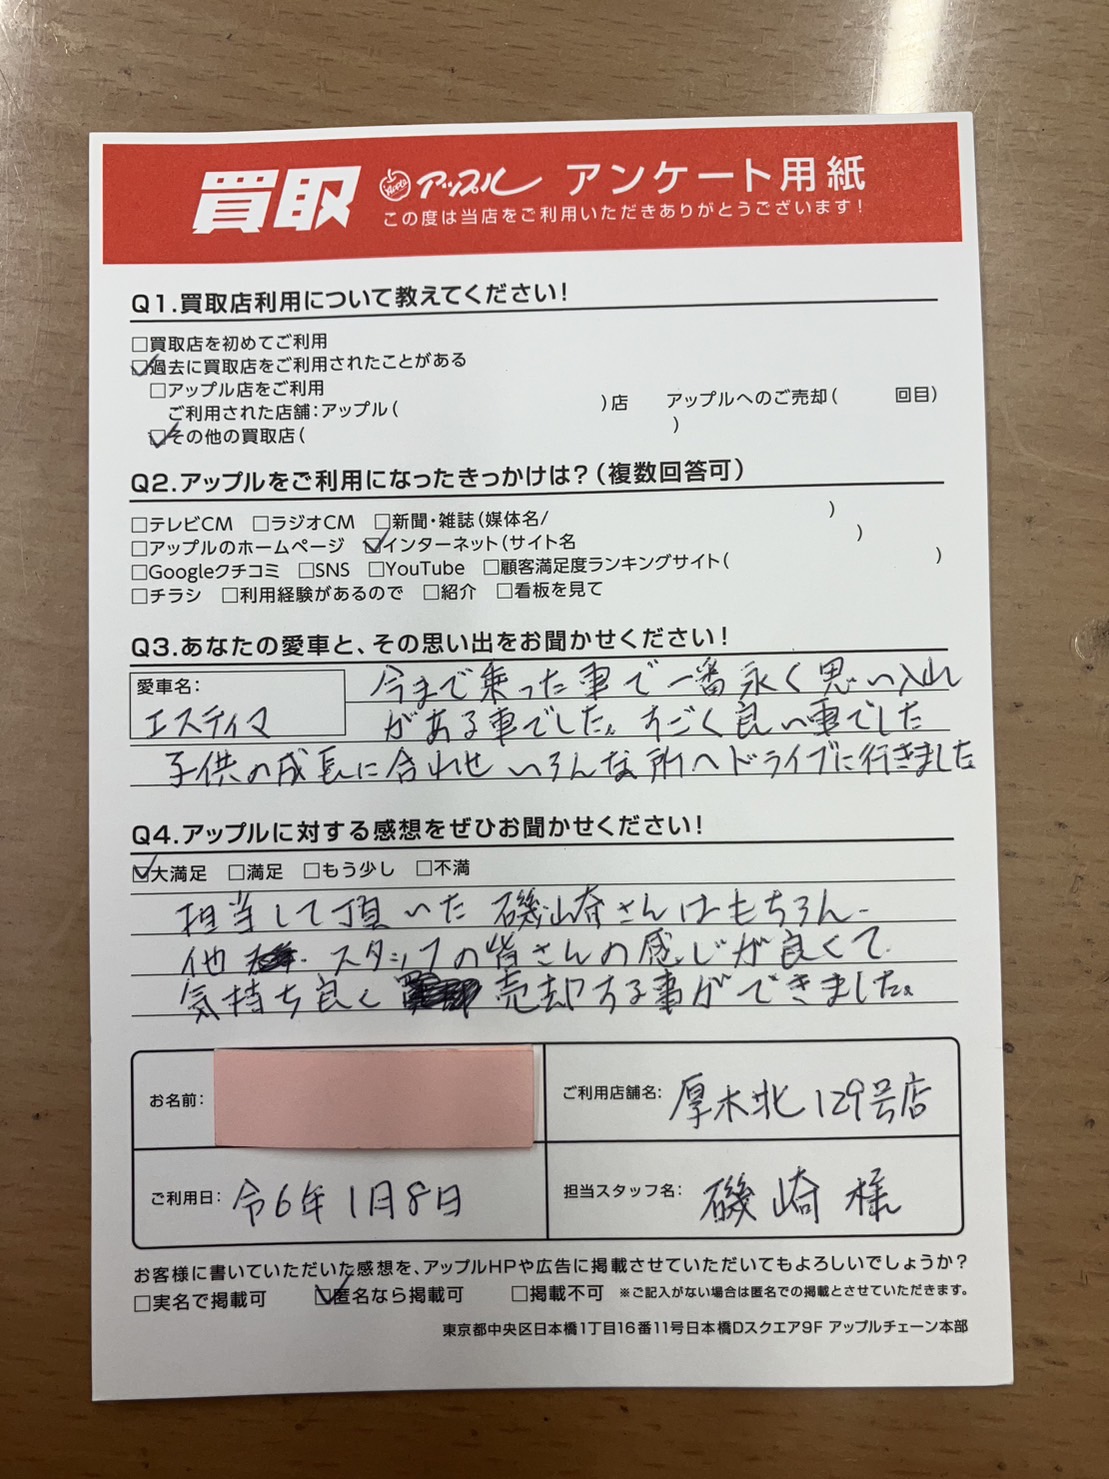 買取 アップル アンケート用紙
この度は当店をご利用いただきありがとうございます!
Q1.買取店利用について教えてください!
□買取店を初めてご利用
☑過去に買取店をご利用されたことがある
□アップル店をご利用
ご利用された店舗:アップル( )店 アップルへのご売却( 回目)
☑その他の買取店( )
Q2.アップルをご利用になったきっかけは?(複数回答可)
□テレビCM □ラジオCM □新聞・雑誌(媒体名/ )
□アップルのホームページ ☑インターネット(サイト名 )
□Googleクチコミ □SNS □YouTube □顧客満足度ランキングサイト( )
□チラシ □利用経験があるので □紹介 □看板を見て
Q3.あなたの愛車と、その思い出をお聞かせください!
愛車名: 今まで乗った車で一番永く思い入れ
エスティマ がある車でした。すごく良い車でした
子供の成長に合わせいろんな所へドライブに行きました
Q4.アップルに対する感想をぜひお聞かせください!
☑大満足 □満足 □もう少し □不満
担当して頂いた磯崎さんはもちろん、
他 スタッフの皆さんの感じが良くて
気持ち良く 売却する事ができました。
お名前: ご利用店舗名: 厚木北129号店
ご利用日: 令6年1月8日 担当スタッフ名: 磯崎様
お客様に書いていただいた感想を、アップルHPや広告に掲載させていただいてもよろしいでしょうか?
□実名で掲載可 ☑匿名なら掲載可 □掲載不可 ※ご記入がない場合は匿名での掲載とさせていただきます。
東京都中央区日本橋1丁目16番11号日本橋Dスクエア9F アップルチェーン本部